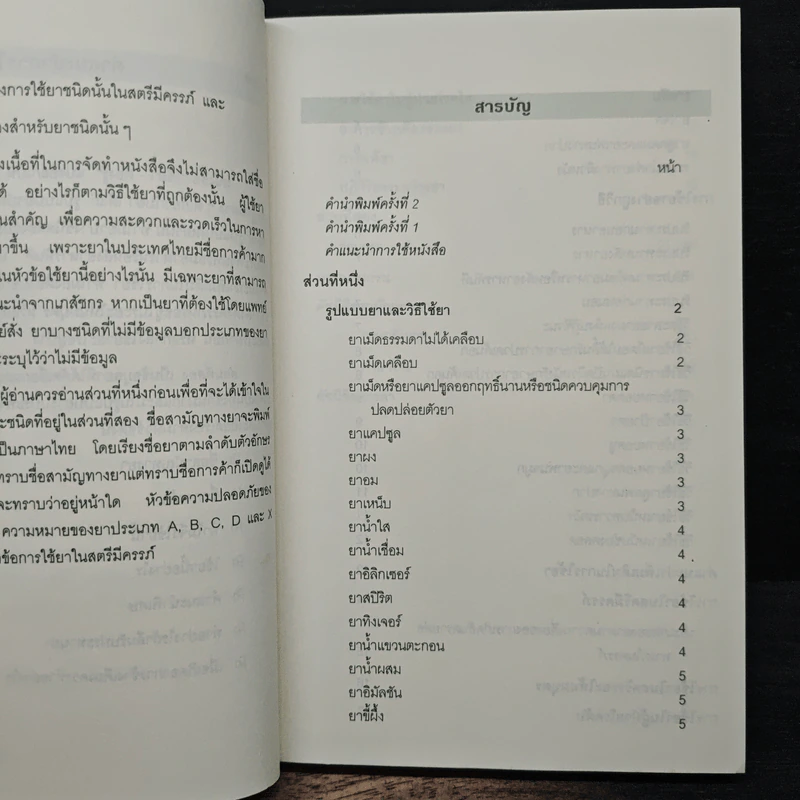 งการใช้ยาชนิดนั้นในสตรีมีครรภ์ และ
งสำหรับยาชนิดนั้น ๆ
งเนื้อที่ในการจัดทำหนังสือจึงไม่สามารถใส่ชื่อ
ด้ อย่างไรก็ตามวิธีใช้ยาที่ถูกต้องนั้น ผู้ใช้ยา
นสำคัญ เพื่อความสะดวกและรวดเร็วในการหา
าขึ้น เพราะยาในประเทศไทยมีชื่อการค้ามาก
นหัวข้อใช้ยานี้อย่างไรนั้น มีเฉพาะยาที่สามารถ
นะนำจากเภสัชกร หากเป็นยาที่ต้องใช้โดยแพทย์
ย์สั่ง ยาบางชนิดที่ไม่มีข้อมูลบอกประเภทของยา
ะระบุไว้ว่าไม่มีข้อมูล
ผู้อ่านควรอ่านส่วนที่หนึ่งก่อนเพื่อที่จะได้เข้าใจใน
ะชนิดที่อยู่ในส่วนที่สอง ชื่อสามัญทางยาจะพิมพ์
เป็นภาษาไทย โดยเรียงชื่อยาตามลำดับตัวอักษร
ทราบชื่อสามัญทางยาแต่ทราบชื่อการค้าก็เปิดดูได้
จะทราบว่าอยู่หน้าใด หัวข้อความปลอดภัยของ
ความหมายของยาประเภท A, B, C, D และ X
ข้อการใช้ยาในสตรีมีครรภ์
สารบัญ
หน้า
คำนำพิมพ์ครั้งที่ 2
คำนำพิมพ์ครั้งที่ 1
คำแนะนำการใช้หนังสือ
ส่วนที่หนึ่ง
รูปแบบยาและวิธีใช้ยา 2
ยาเม็ดธรรมดาไม่ได้เคลือบ 2
ยาเม็ดเคลือบ 2
ยาเม็ดหรือยาแคปซูลออกฤทธิ์นานหรือชนิดควบคุมการ
ปลดปล่อยตัวยา 3
ยาแคปซูล 3
ยาผง 3
ยาอม 3
ยาเหน็บ 3
ยาน้ำใส 4
ยาน้ำเชื่อม 4
ยาอิลิกเซอร์ 4
ยาสปิริต 4
ยาทิงเจอร์ 4
ยาน้ำแขวนตะกอน 4
ยาน้ำผสม 5
ยาอิมัลชัน 5
ยาขี้ผึ้ง 5